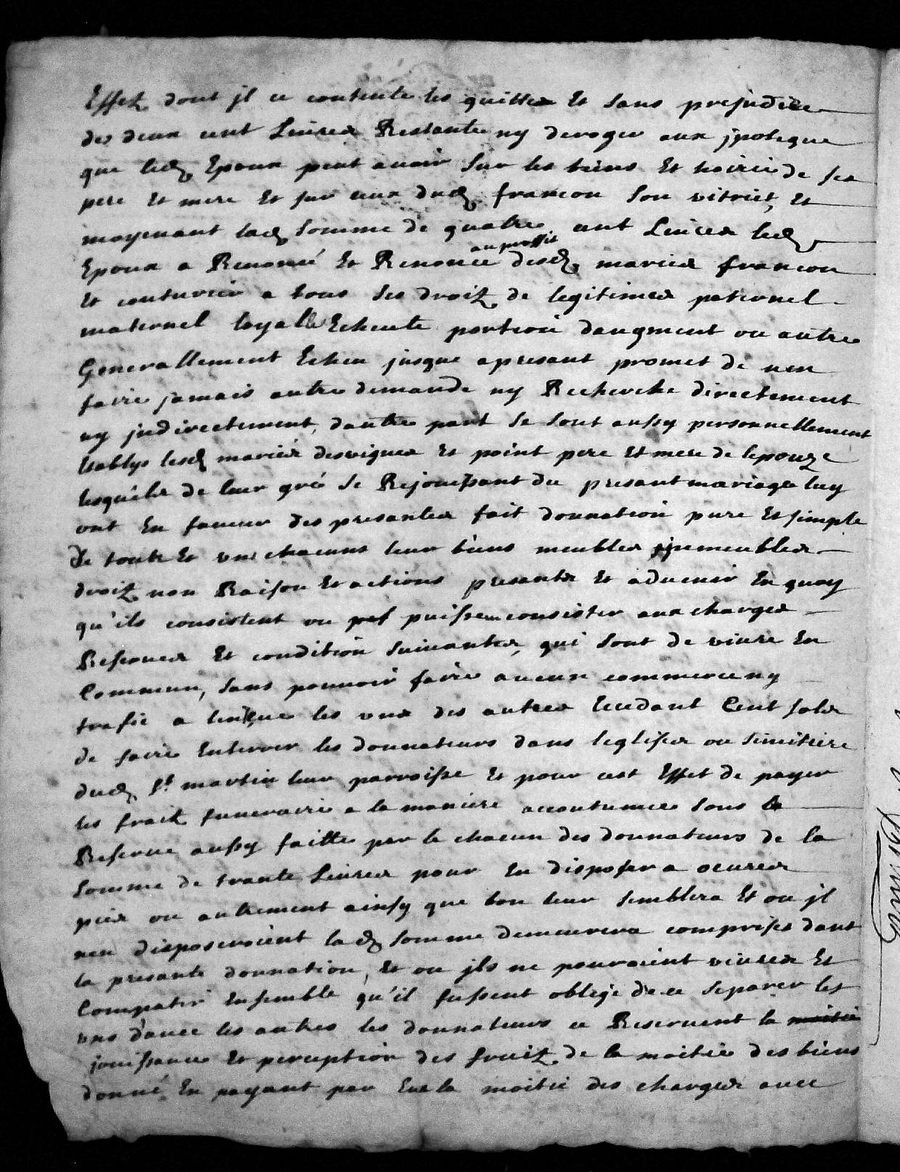 Effetz dont jl ce contente les quittes Et sans prejudice
des deux cent Livres Restante ny deroger aux jpoteque
que led Epoux peut avoir sur les biens Et hoirie de ses
pere Et mere Et sur ceux dud francon son vitriet, Et
moyenant lad somme de quatre cent Livres led
Epoux a Renoncé Et Renonce au proffit desd mariés francon
Et couturier a tous ses droitz de legitimes paternel
maternel loyalle Echeute portion daugment ou autre
Generallement Echeu jusque apresant promet de nen
faire jamais autre demande ny Recherche directement
ny jndirectement, dautre part se sont aussy personnellement
Establys lesd mariés desvignes Et point pere Et mere de lepouze
lesquels de leur gré se Rejouissant du presant mariage luy
ont En faveur des presantes fait donnation pure Et simple
de toutz Et uns chacuns leur biens meubles jmmeubles
droitz non Raison Et actions presants Et advenir En quoy
qu'ils consistent ou puissent consister aux charges
Reserves Et condition suivantes, qui sont de vivre En
Commun, sans pouvoir faire aucun commerce ny
trafic a linsçue les uns des autres Excedant Cent sols
de faire Enterrer les donnateurs dans leglise ou simitiere
dud St martin leur parroisse Et pour cet Effet de payer
les fraix funeraire a la maniere accoutumée sous la
Reserve aussy faitte par le chacun des donnateurs de la
somme de trante Livres pour En disposer a oeuvres
pies ou autrement ainsy que bon leur semblera Et ou jl
nen disposeroient lad somme demeurera comprise dans
la presante donnation, Et ou jls ne pouroient vivres Et
Compatir Ensemble qu'il fussent obligé de ce separer les
uns d'avec les autres les donnateurs ce Reservent la
jouissance Et perception des fruitz de la moitié des biens
donné, En payant par Eux la moitié des charges avec